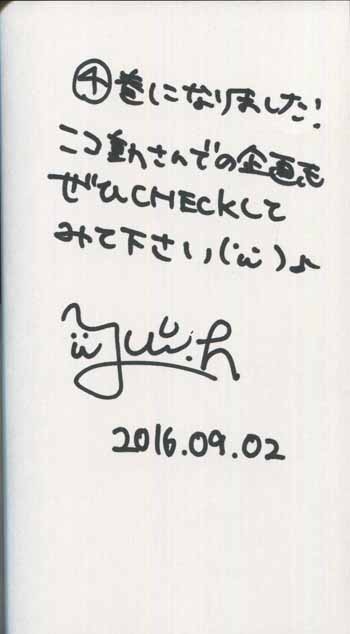 ④巻になりました!
ニコ動さんでの企画も
ぜひCHECKして
みて下さい(ˊωˋ)♪
yuu.h
2016.09.02